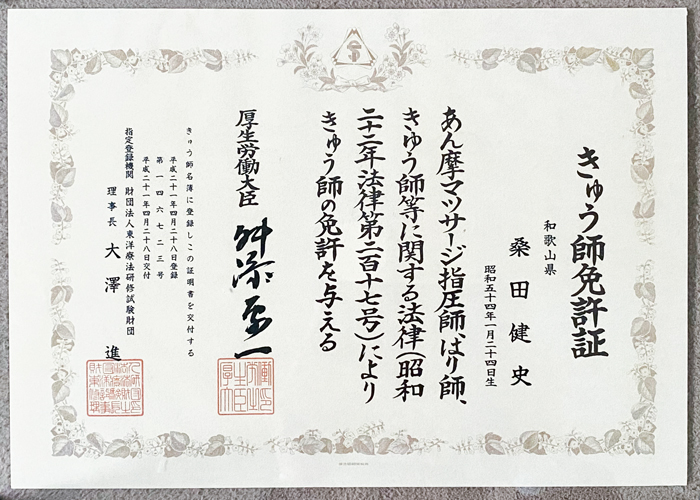 きゅう師免許証
和歌山県
桑田健史
昭和五十四年一月二十四日生
あん摩マツサージ指圧師、はり師、
きゆう師等に関する法律(昭和
二十二年法律第二百十七号)により
きゅう師の免許を与える
厚生労働大臣 舛添要一
きゅう師名簿に登録しこの証明書を交付する
平成二十一年四月二十八日登録
第一四六七二三号
平成二十一年四月二十八日交付
指定登録機関 財団法人東洋療法研修試験財団
理事長 大澤進